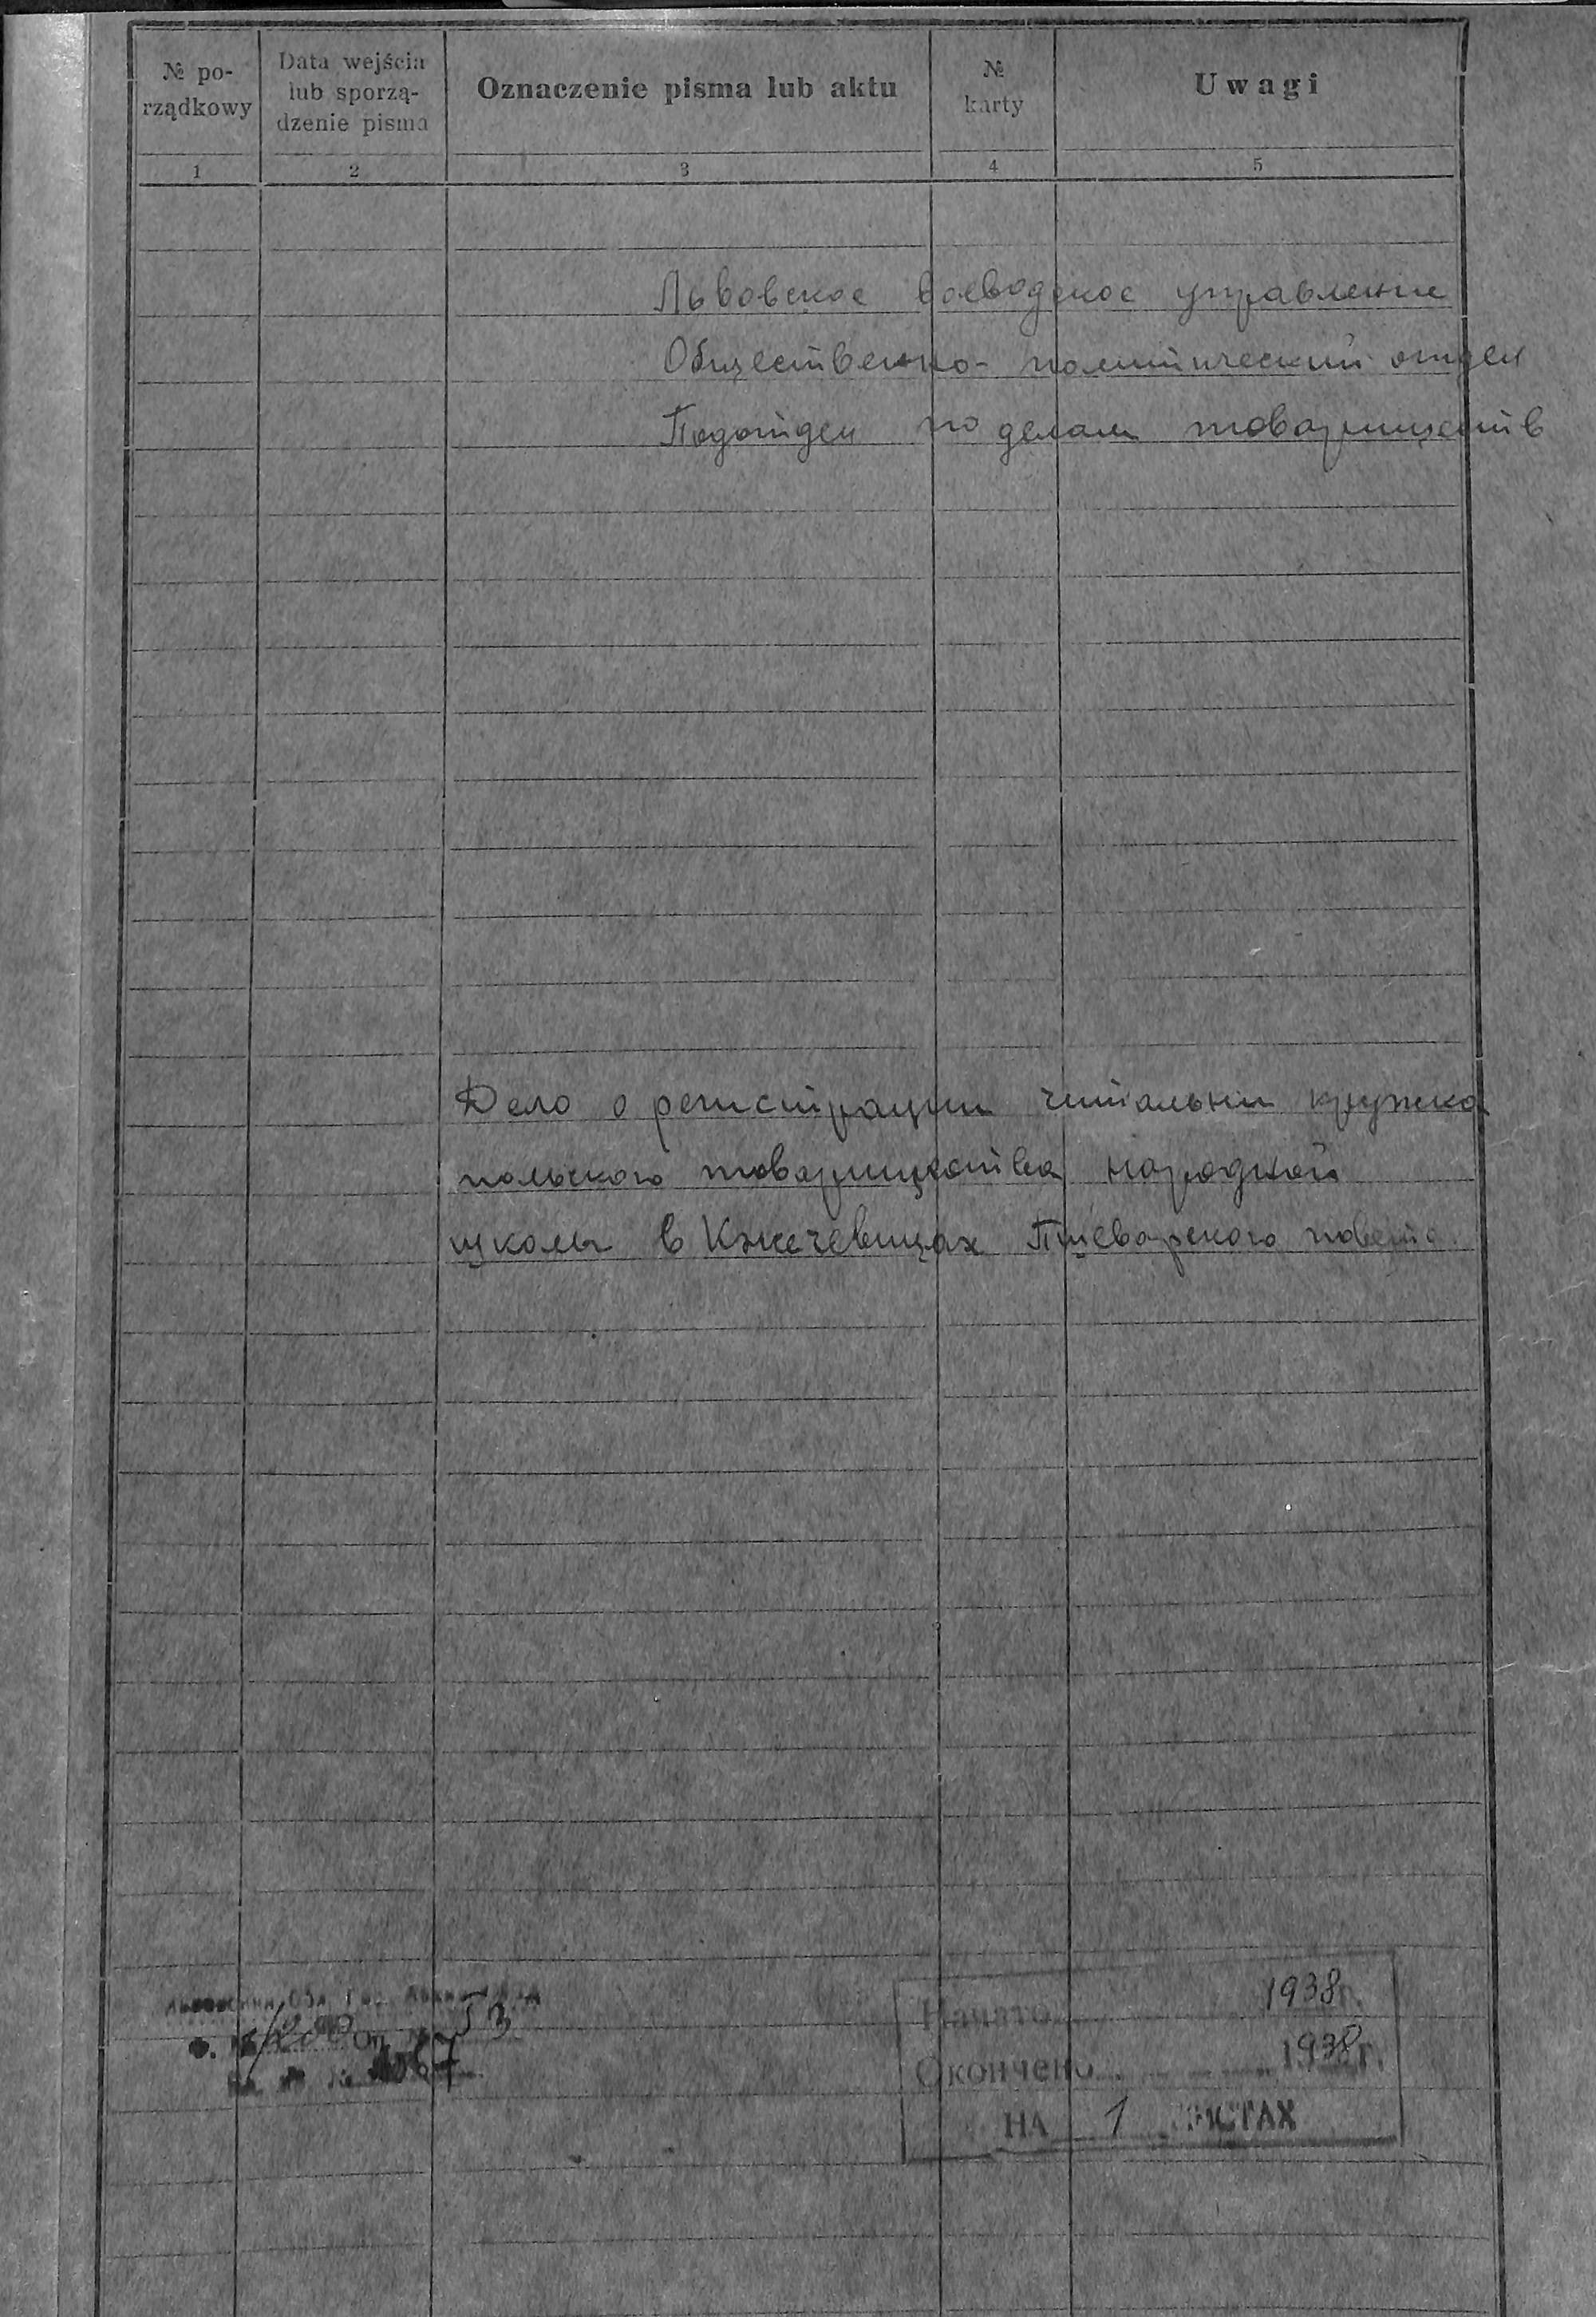 № po-
rządkowy
Data wejścia
lub sporzą-
dzenie pisma
Oznaczenie pisma lub aktu
№
karty
Uwagi
1 2 3 4 5
Львовское воеводское управление
Общественно-политический отдел
Подотдел по делам товариществ
Дело о регистрации читальни кружка
польского товарищества народной
школы в Кжечевицах Пшеворского повета
Начато 1938г.
Окончено 1938г.
НА 1 ЛИСТАХ